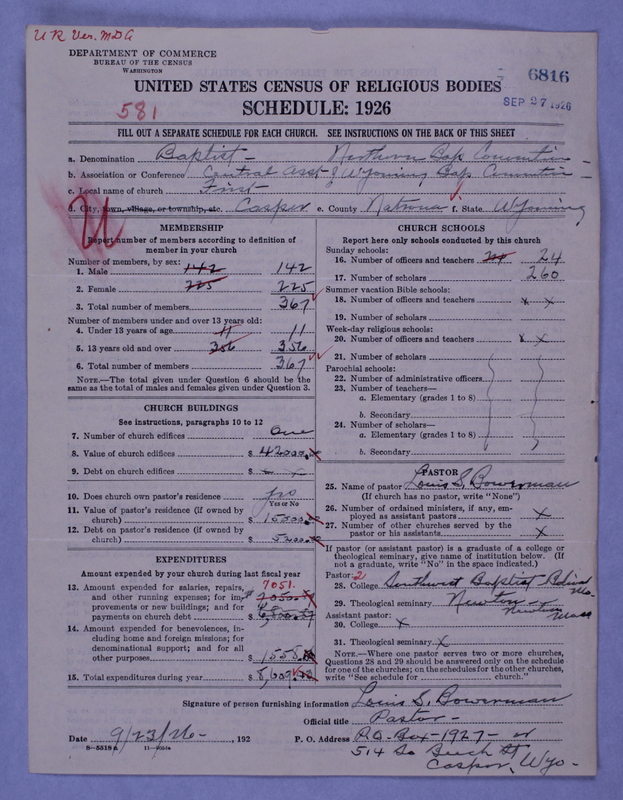 U R Ver. M.D.G
DEPARTMENT OF COMMERCE
BUREAU OF THE CENSUS
WASHINGTON
6816
SEP 27 1926
UNITED STATES CENSUS OF RELIGIOUS BODIES
581
SCHEDULE: 1926
FILL OUT A SEPARATE SCHEDULE FOR EACH CHURCH. SEE INSTRUCTIONS ON THE BACK OF THIS SHEET
a. Denomination Baptist - Northern Bap Convention -
b. Association or Conference Central Assn of Wyoming Bap Convention -
c. Local name of church First
d. City, town, village, or township, etc. Casper e. County Natrona f. State Wyoming
U
MEMBERSHIP
Report number of members according to definition of
member in your church
Number of members, by sex:
1. Male 142 142
2. Female 225 225
3. Total number of members 367
Number of members under and over 13 years old:
4. Under 13 years of age 11 11
5. 13 years old and over 356 356
6. Total number of members 367
NOTE.—The total given under Question 6 should be the
same as the total of males and females given under Question 3.
CHURCH BUILDINGS
See instructions, paragraphs 10 to 12
7. Number of church edifices One
8. Value of church edifices $ 42000.
9. Debt on church edifices $ - x
10. Does church own pastor's residence yes
Yes or No
11. Value of pastor's residence (if owned by
church) $
12. Debt on pastor's residence (if owned by
church) $ 5200.
EXPENDITURES
Amount expended by your church during last fiscal year
13. Amount expended for salaries, repairs, 7051.
and other running expenses; for im- $
provements or new buildings; and for
payments on church debt
14. Amount expended for benevolences, in-
cluding home and foreign missions; for
denominational support; and for all
other purposes $ 1558.
15. Total expenditures during year $ 8,609.
CHURCH SCHOOLS
Report here only schools conducted by this church
Sunday schools:
16. Number of officers and teachers 24
17. Number of scholars 260
Summer vacation Bible schools:
18. Number of officers and teachers x x
19. Number of scholars
Week-day religious schools:
20. Number of officers and teachers x x
21. Number of scholars
Parochial schools:
22. Number of administrative officers
23. Number of teachers—
a. Elementary (grades 1 to 8)
b. Secondary
24. Number of scholars—
a. Elementary (grades 1 to 8)
b. Secondary
PASTOR
25. Name of pastor Louis S. Bowerman
(If church has no pastor, write "None")
26. Number of ordained ministers, if any, em-
ployed as assistant pastors x
27. Number of other churches served by the
pastor or his assistants x
If pastor (or assistant pastor) is a graduate of a college or
theological seminary, give name of institution below. (If
not a graduate, write "No" in the space indicated.)
Pastor: 2
28. College Southwest Baptist Bolivar Mo.
29. Theological seminary Newton - Newton Mass
Assistant pastor:
30. College x
31. Theological seminary x
NOTE.—Where one pastor serves two or more churches,
Questions 28 and 29 should be answered only on the schedule
for one of the churches; on the schedules for the other churches,
write "See schedule for church."
Signature of person furnishing information Louis S. Bowerman
Official title Pastor -
Date 9/23/26 -, 192 P. O. Address P.O. Box - 1927 - or
514 So Beech St
Casper, Wyo -